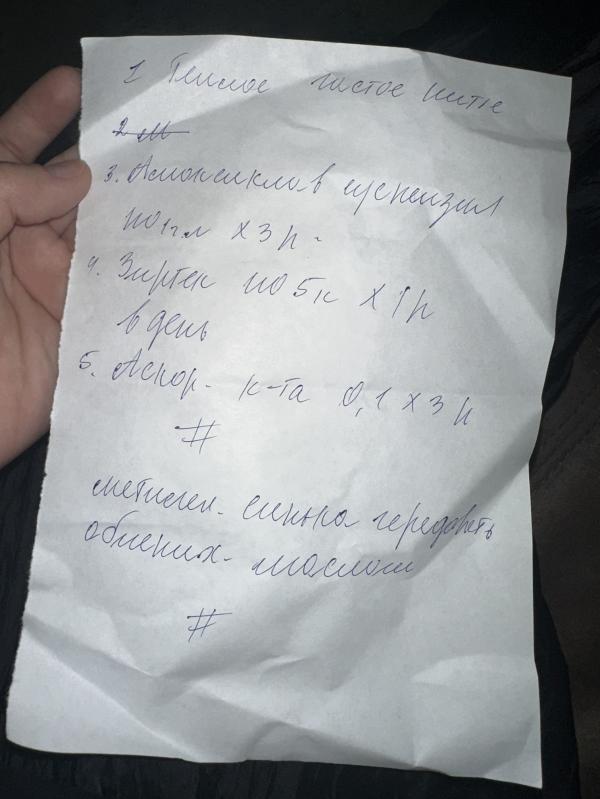 1 Теплое частое питье
2 М
3. Амоксиклав суспензия
по 1 г.л х 3 р.
4. Зиртек по 5 к х 1 р
в день
5. Аскор. к-та 0,1 х 3 р
#
метилен. синька чередовать
облепих. маслом
#